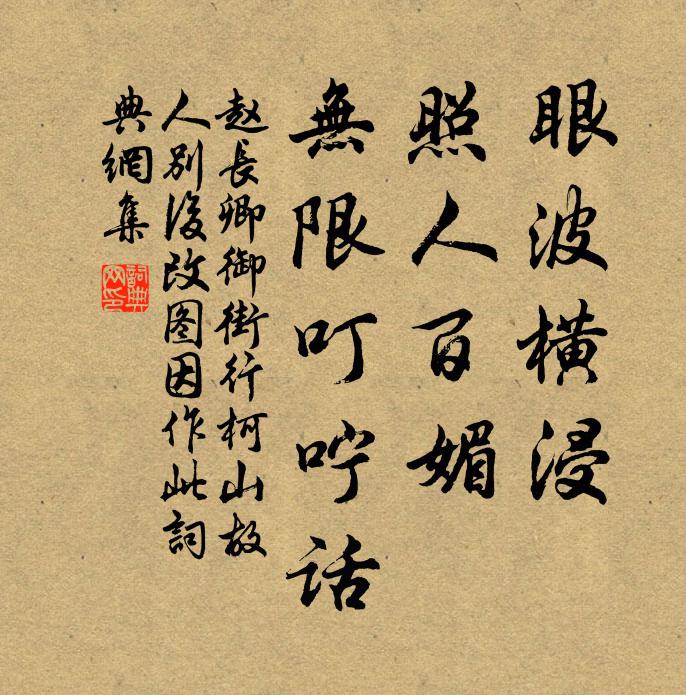 眼波橫浸
照人百媚
無限叮咛話
赵長卿御街行柯山故
人別後改图因作此詞
典網集
詞典
网印